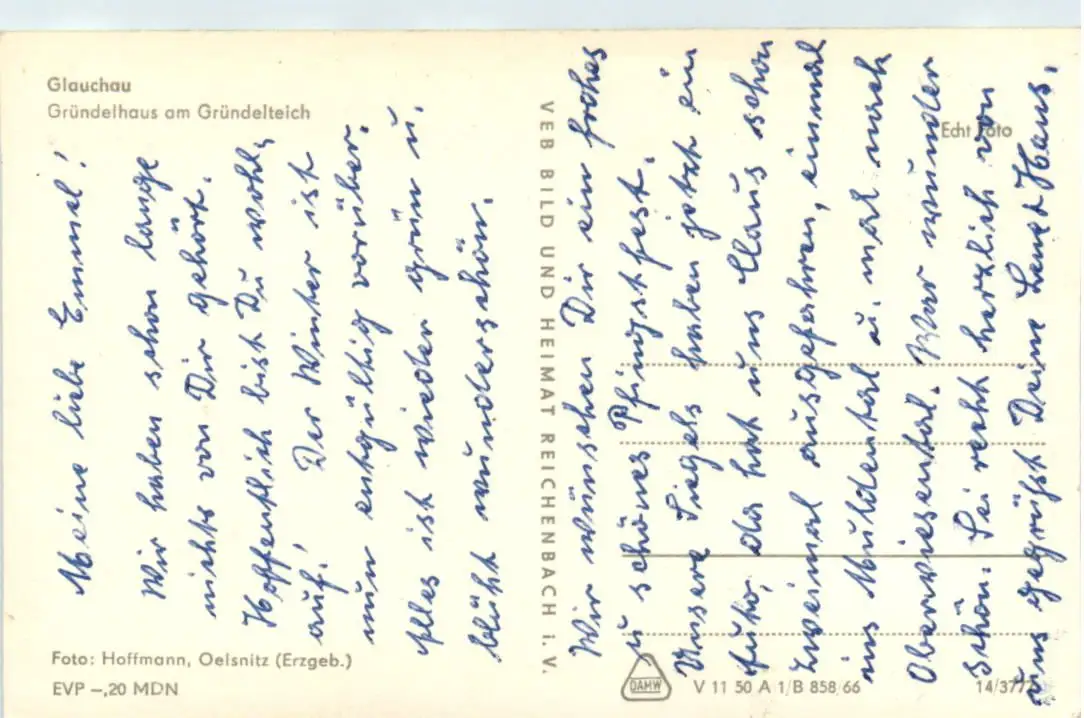 Glauchau
Gründelhaus am Gründelteich
Echt Foto
Meine liebe Emmel!
Wir haben schon lange
nichts von Dir gehört.
Hoffentlich bist Du wohl
auf! Der Winter ist
nun entgültig vorüber.
Alles ist wieder grün u.
blüht wunderschön.
VEB BILD UND HEIMAT REICHENBACH i. V.
Wir wünschen Dir ein frohes
u schönes Pfingstfest.
Unsere Siegels haben jetzt ein
Auto, da hat uns Claus schon
zweimal ausgefahren, einmal
ins Muldental u. mal nach
Oberwiesental. War wunder
schön. Sei recht herzlich von
uns gegrüßt Deine Lene + Hans.
Foto: Hoffmann, Oelsnitz (Erzgeb.)
EVP –,20 MDN
DAMW
V 11 50 A 1/B 858/66